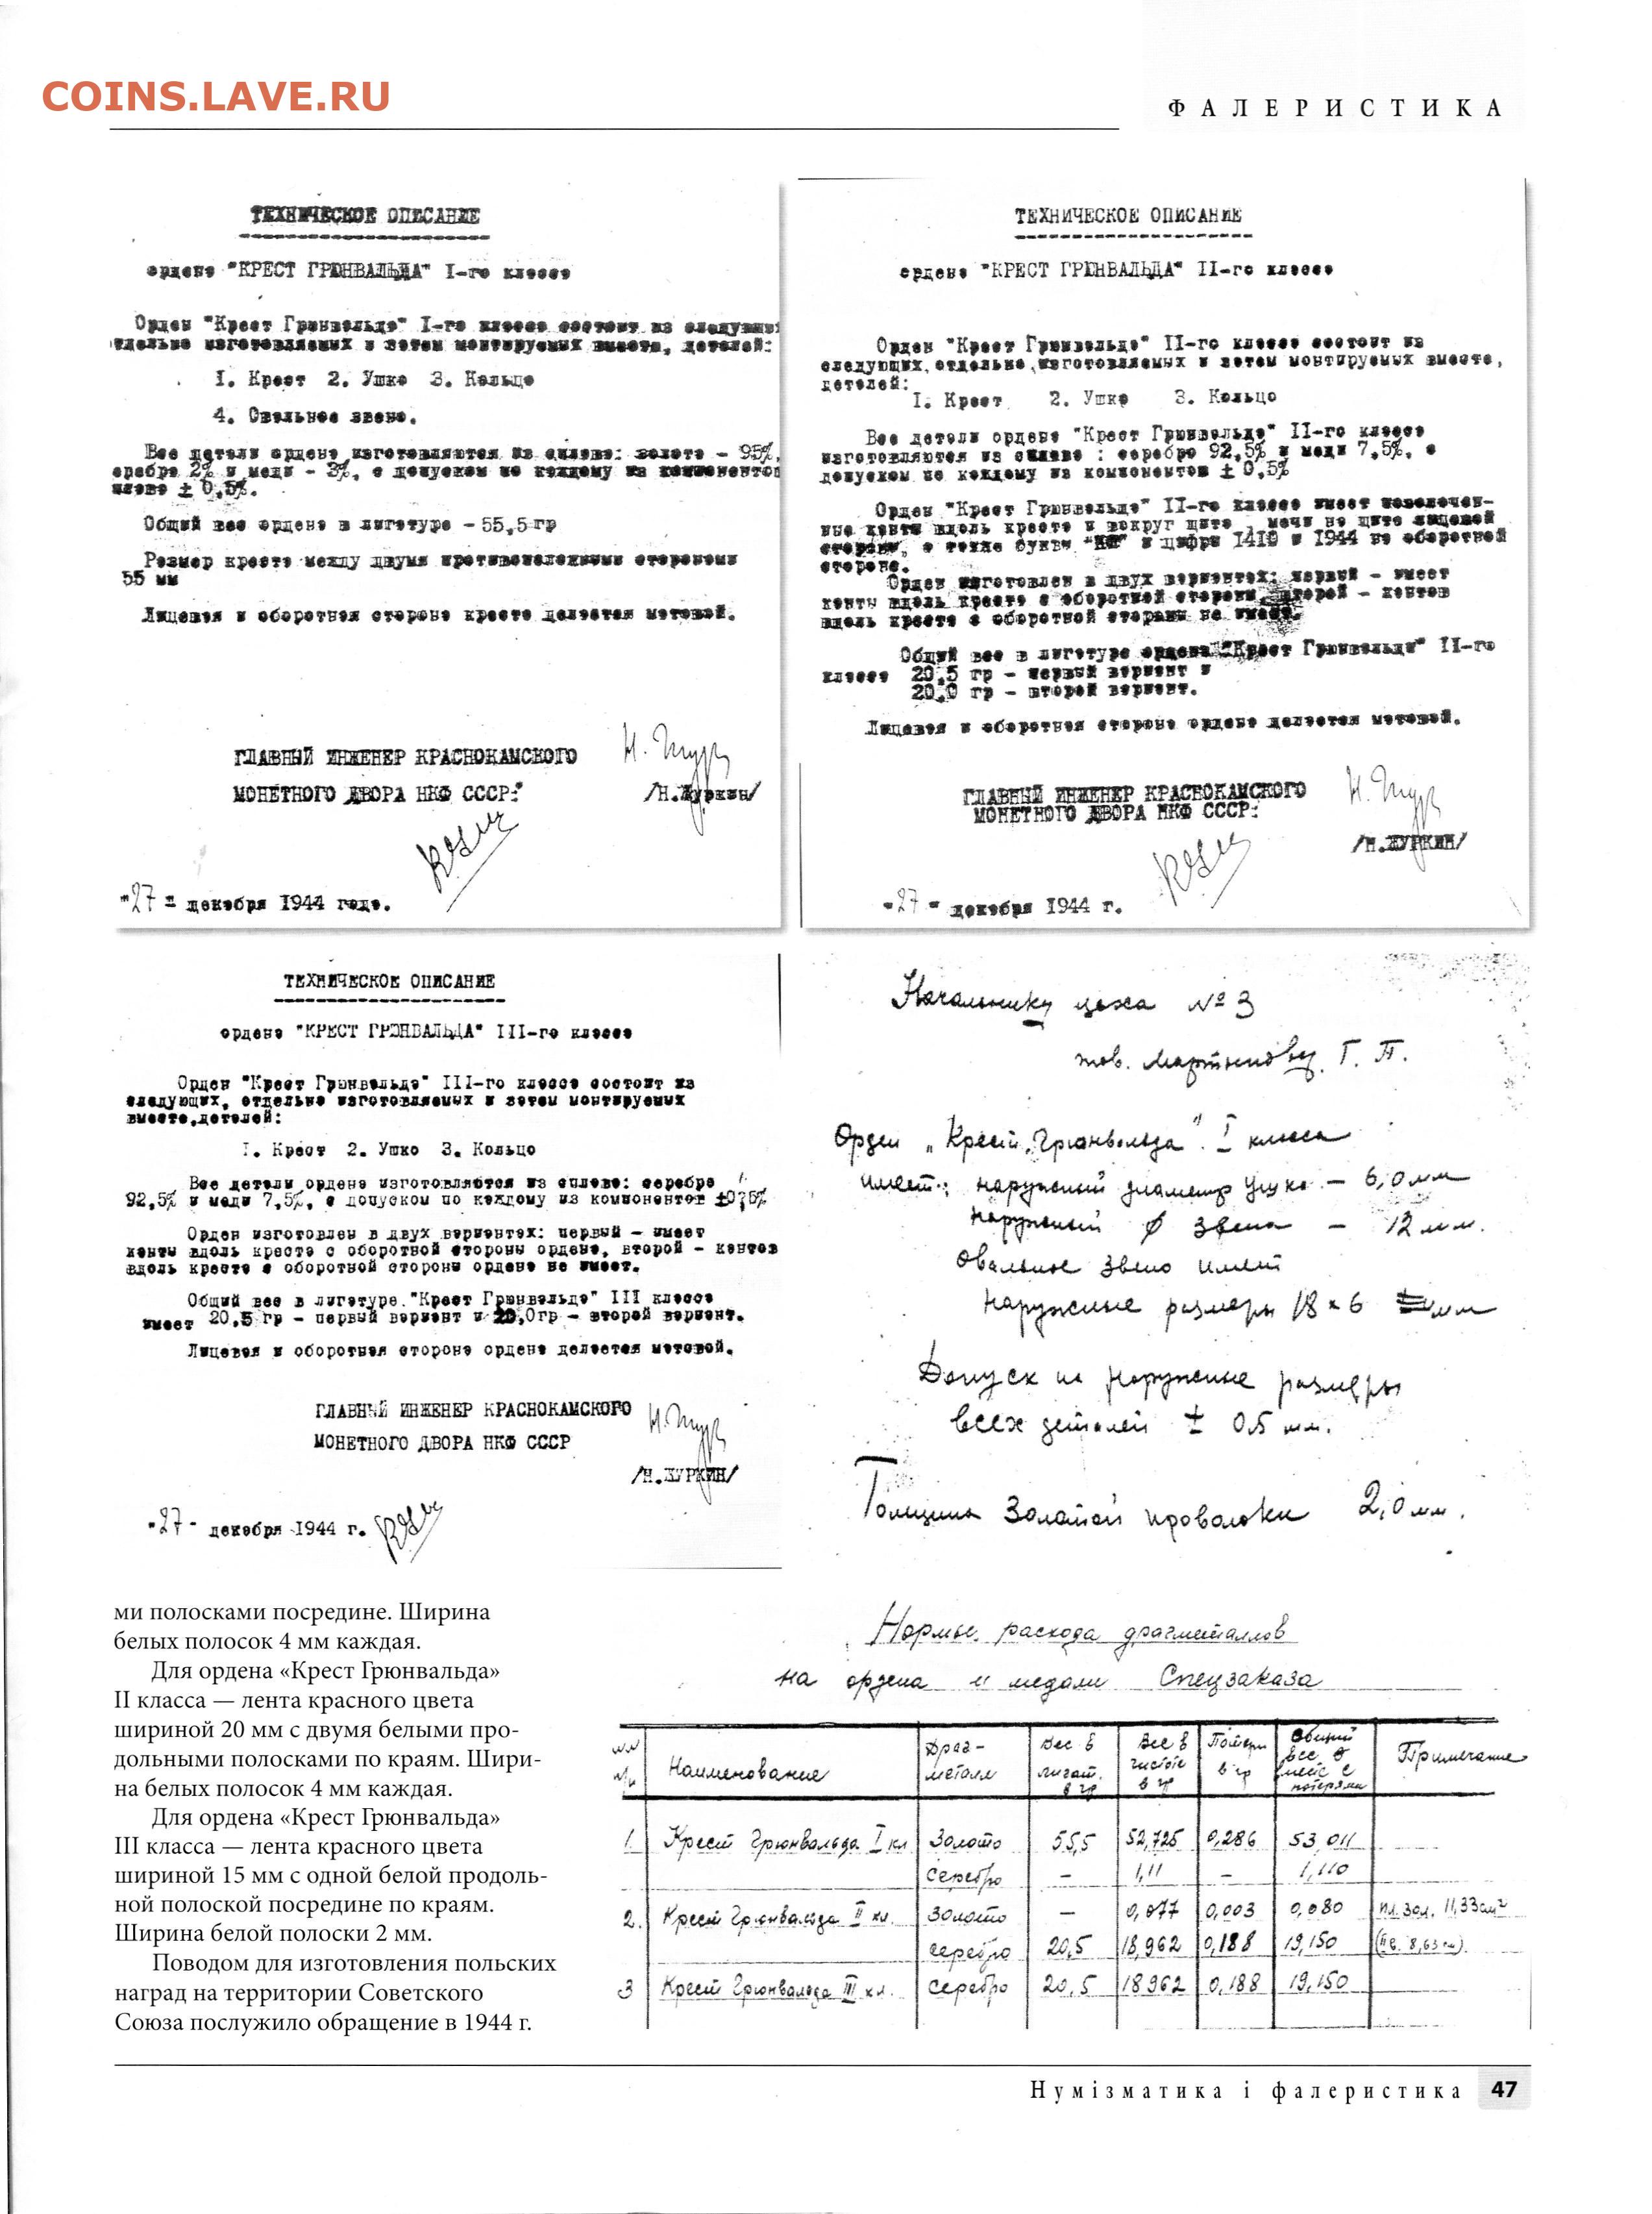 COINS.LAVE.RU
ФАЛЕРИСТИКА
ТЕХНИЧЕСКОЕ ОПИСАНИЕ
ордена "КРЕСТ ГРЮНВАЛЬДА" I-го класса
Орден "Крест Грюнвальда" I-го класса состоит из следующи
тдельно изготовляемых и затем монтируемых вместе, деталей:
I. Крест 2. Ушко 3. Кольцо
4. Овальное звено.
Все детали ордена изготовляются из сплава: золота - 95%,
еребра 2% и меди - 3%, с допуском по каждому из компонентов
плава ± 0,5%.
Общий вес ордена в лигатуре - 55,5 гр
Размер креста между двумя противоположными сторонами
55 мм
Лицевая и оборотная сторона креста делается матовой.
ГЛАВНЫЙ ИНЖЕНЕР КРАСНОКАМСКОГО
МОНЕТНОГО ДВОРА НКФ СССР:
/Н.Журкин/
"27" декабря 1944 года.
ТЕХНИЧЕСКОЕ ОПИСАНИЕ
ордена "КРЕСТ ГРЮНВАЛЬДА" II-го класса
Орден "Крест Грюнвальда" II-го класса состоит из
следующих, отдельно изготовляемых и затем монтируемых вместе,
деталей:
I. Крест 2. Ушко 3. Кольцо
Все детали ордена "Крест Грюнвальда" II-го класса
изготовляются из сплава : серебро 92,5% и меди 7,5%, с
допуском по каждому из компонентов ± 0,5%
Орден "Крест Грюнвальда" II-го класса имеет позолочен-
ные канты вдоль креста и вокруг щита, мечи на щите лицевой
стороны, а также буквы и цифры 1410 и 1944 на оборотной
стороне.
Орден изготовлен в двух вариантах: первый - имеет
канты вдоль креста с оборотной стороны, второй - кантов
вдоль креста с оборотной стороны не имеет.
Общий вес в лигатуре ордена "Крест Грюнвальда" II-го
класса 20,5 гр - первый вариант и
20,0 гр - второй вариант.
Лицевая и оборотная сторона ордена делается матовой.
ГЛАВНЫЙ ИНЖЕНЕР КРАСНОКАМСКОГО
МОНЕТНОГО ДВОРА НКФ СССР:
/Н.ЖУРКИН/
"27" декабря 1944 г.
ТЕХНИЧЕСКОЕ ОПИСАНИЕ
ордена "КРЕСТ ГРЮНВАЛЬДА" III-го класса
Орден "Крест Грюнвальда" III-го класса состоит из
следующих, отдельно изготовляемых и затем монтируемых
вместе, деталей:
I. Крест 2. Ушко 3. Кольцо
Все детали ордена изготовляются из сплава: серебро
92,5% и меди 7,5%, с допуском по каждому из компонентов ±0,5%
Орден изготовлен в двух вариантах: первый - имеет
канты вдоль креста с оборотной стороны ордена, второй - кантов
вдоль креста с оборотной стороны ордена не имеет.
Общий вес в лигатуре "Крест Грюнвальда" III класса
имеет 20,5 гр - первый вариант и 20,0гр - второй вариант.
Лицевая и оборотная сторона ордена делается матовой.
ГЛАВНЫЙ ИНЖЕНЕР КРАСНОКАМСКОГО
МОНЕТНОГО ДВОРА НКФ СССР
/Н.ЖУРКИН/
"27" декабря 1944 г.
Начальнику цеха № 3
тов. Мартынову Г. П.
Орден „Крест Грюнвальда" I класса
имеет: наружный диаметр ушка — 6,0 мм
наружный ø звена — 12 мм.
Овальное звено имеет
наружные размеры 18 × 6 мм
Допуск на наружные размеры
всех деталей ± 0,5 мм.
Толщина золотой проволоки 2,0 мм.
ми полосками посредине. Ширина
белых полосок 4 мм каждая.
Для ордена «Крест Грюнвальда»
II класса — лента красного цвета
шириной 20 мм с двумя белыми про-
дольными полосками по краям. Шири-
на белых полосок 4 мм каждая.
Для ордена «Крест Грюнвальда»
III класса — лента красного цвета
шириной 15 мм с одной белой продоль-
ной полоской посредине по краям.
Ширина белой полоски 2 мм.
Поводом для изготовления польских
наград на территории Советского
Союза послужило обращение в 1944 г.
Нормы расхода драгметаллов
на ордена и медали Спецзаказа
№№ п/п Наименование Драг-металл Вес в лигат. в гр Вес в чистоте в гр Потери в гр Общий вес в чист. с потерями Примечание
1. Крест Грюнвальда I кл золото 55,5 52,725 0,286 53,011
серебро — 1,11 — 1,110
2. Крест Грюнвальда II кл. золото — 0,077 0,003 0,080 пл. зол. 11,33 см²
серебро 20,5 18,962 0,188 19,150
3 Крест Грюнвальда III кл. серебро 20,5 18962 0,188 19,150
Нумізматика і фалеристика 47